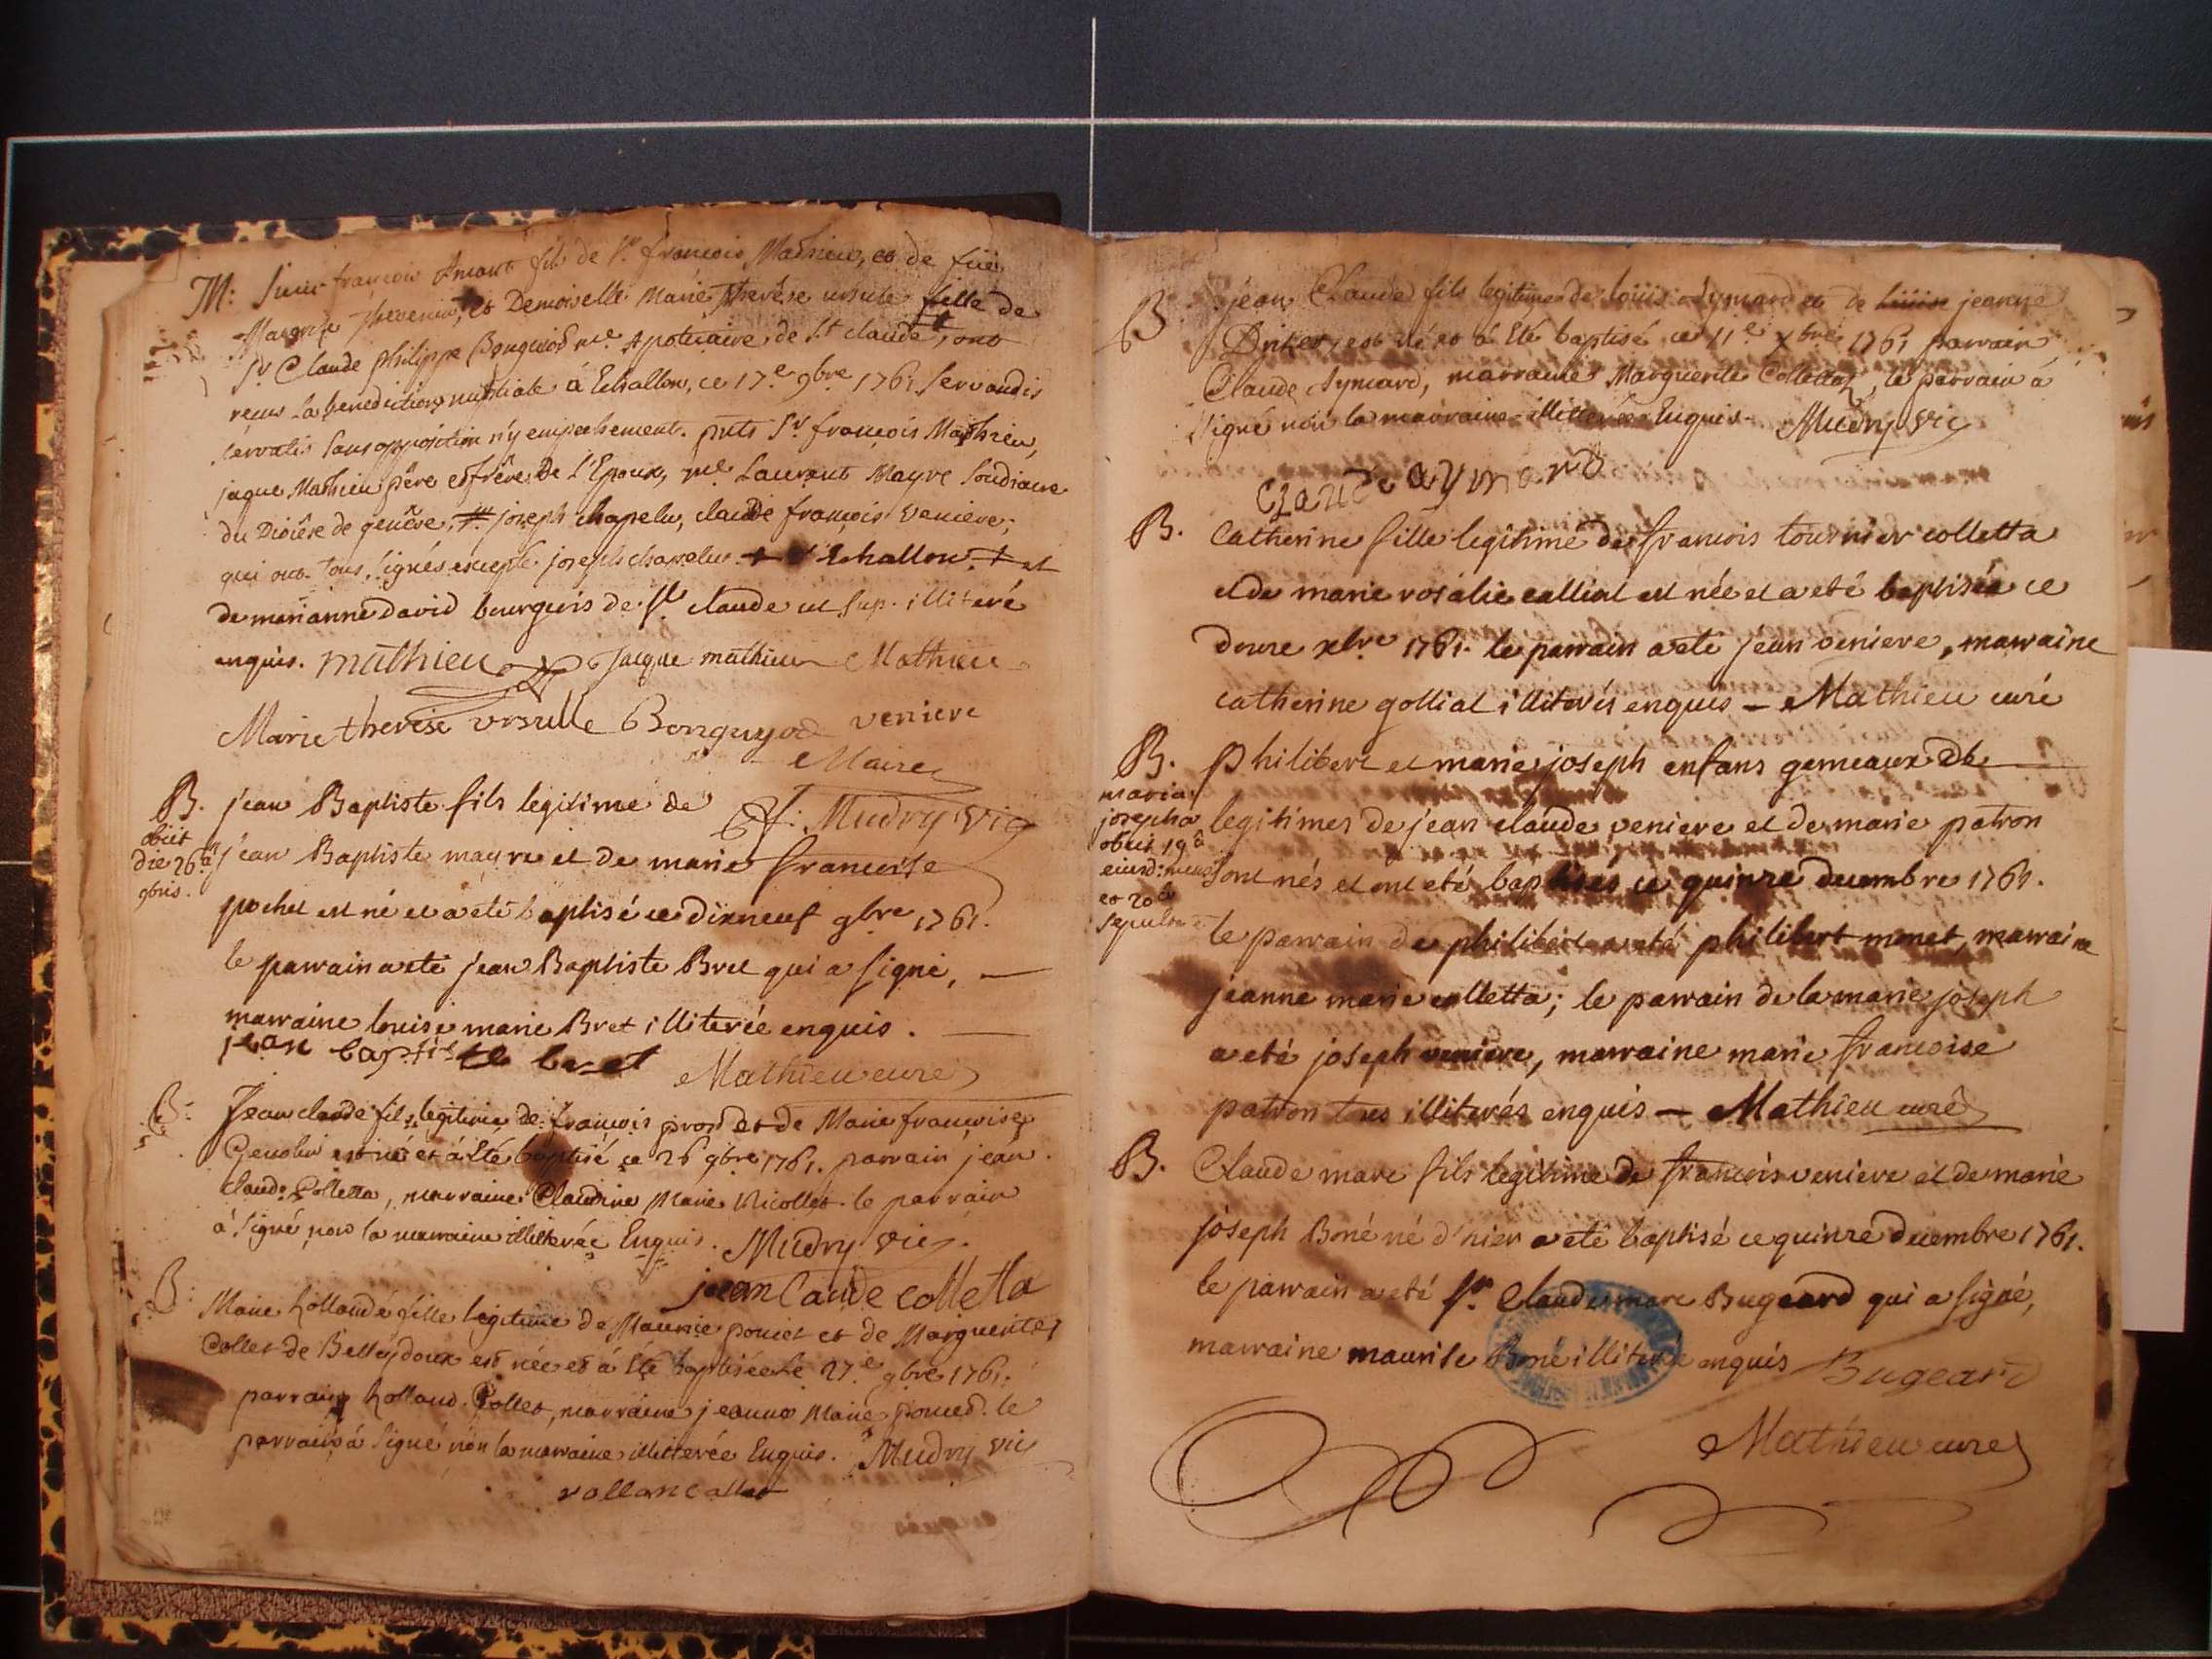 M: Sieur françois Amant fils de Sr. françois Mathieu, et de füe
Margrite thevenin, et Demoiselle Marie Therèse ursule fille de
Sr Claude philippe Bonguiod me. Apoticaire de St claude, ont
reçus la benediction nuptiale á Echallon, ce 17.e 9bre 1761 servandis
servatis sans opposition n'y empechement. prêts Sr. françois Mathieu,
jaque Mathieu père et frère de l'Epoux, me. Laurent Mayre
du Diocèse de genêve, joseph chapelu, claude françois veniere,
qui ont tous signés excepté joseph chapelu. + d'Echallon. + et
de marianne david bourgeois de St. claude et sup. illiteré
enquis. mathieu Jacque mathieu Mathieu
Marie therese ursulle Bonguyod veniere
Maire
B. jean Baptiste fils legitime de Mudry vic
obiit die 26â 9bris.
jean Baptiste mayre et de marie francoise
pochet est né et a eté baptisé ce dixneuf 9bre 1761.
le parrain a eté jean Baptiste Bret qui a signé,
marraine louise marie Bret illiterée enquis.
jean baptiste bret
Mathieu curé
B: Jean claude fils legitime de françois prost et de Marie françoise
Genolin est né et á été baptisé ce 26 9bre 1761. parrain jean
claude Colletta, marraine Claudine Marie Nicollet. le parrain
á signé non la marraine illiterée Enquis. Mudry vic.
jean Caude colletta
B: Marie Rollande fille legitime de Maurie poncet et de Marguerite
Collet de Belleydoux est née et á été baptisée le 27.e 9bre 1761.
parrain Rolland Collet, marraine jeanne Marie poncet. le
parrain á signé non la marraine illiterée Enquis. Mudry vic
rollan collet
B: jean Claude fils legitime de loüis Aymard et de jeanne
est né et á été baptisé ce 11.e xbre 1761 parrain
Claude Aymard, marraine Marguerite Colletta, le parrain á
signé non la marraine illiterée Enquis. Mudry vic
Claude aymard
B. Catherine fille legitime de francois tournier colletta
et de marie rosalie calliat est née et a eté baptisée ce
douze xbre 1761. le parrain a eté jean veniere, marraine
catherine golliat illiterés enquis — Mathieu curé
B. Philibert et marie joseph enfans gemeaux de
maria josepha obiit 19â eiusd: mensis et 20â sepulta
legitimes de jean claude veniere et de marie patron
sont nés et ont eté baptisés ce quinze decembre 1761.
le parrain de philibert a eté philibert monet, marraine
jeanne marie colletta; le parrain de la marie joseph
a eté joseph veniere, marraine marie francoise
patron tous illiterés enquis — Mathieu curé
B. Claude marc fils legitime de francois veniere et de marie
joseph Boné né d'hier a eté baptisé ce quinze decembre 1761.
le parrain a eté Sr. Claude marc Bugeard qui a signé,
marraine maurise Boné illiterée enquis Bugeard
Mathieu curé